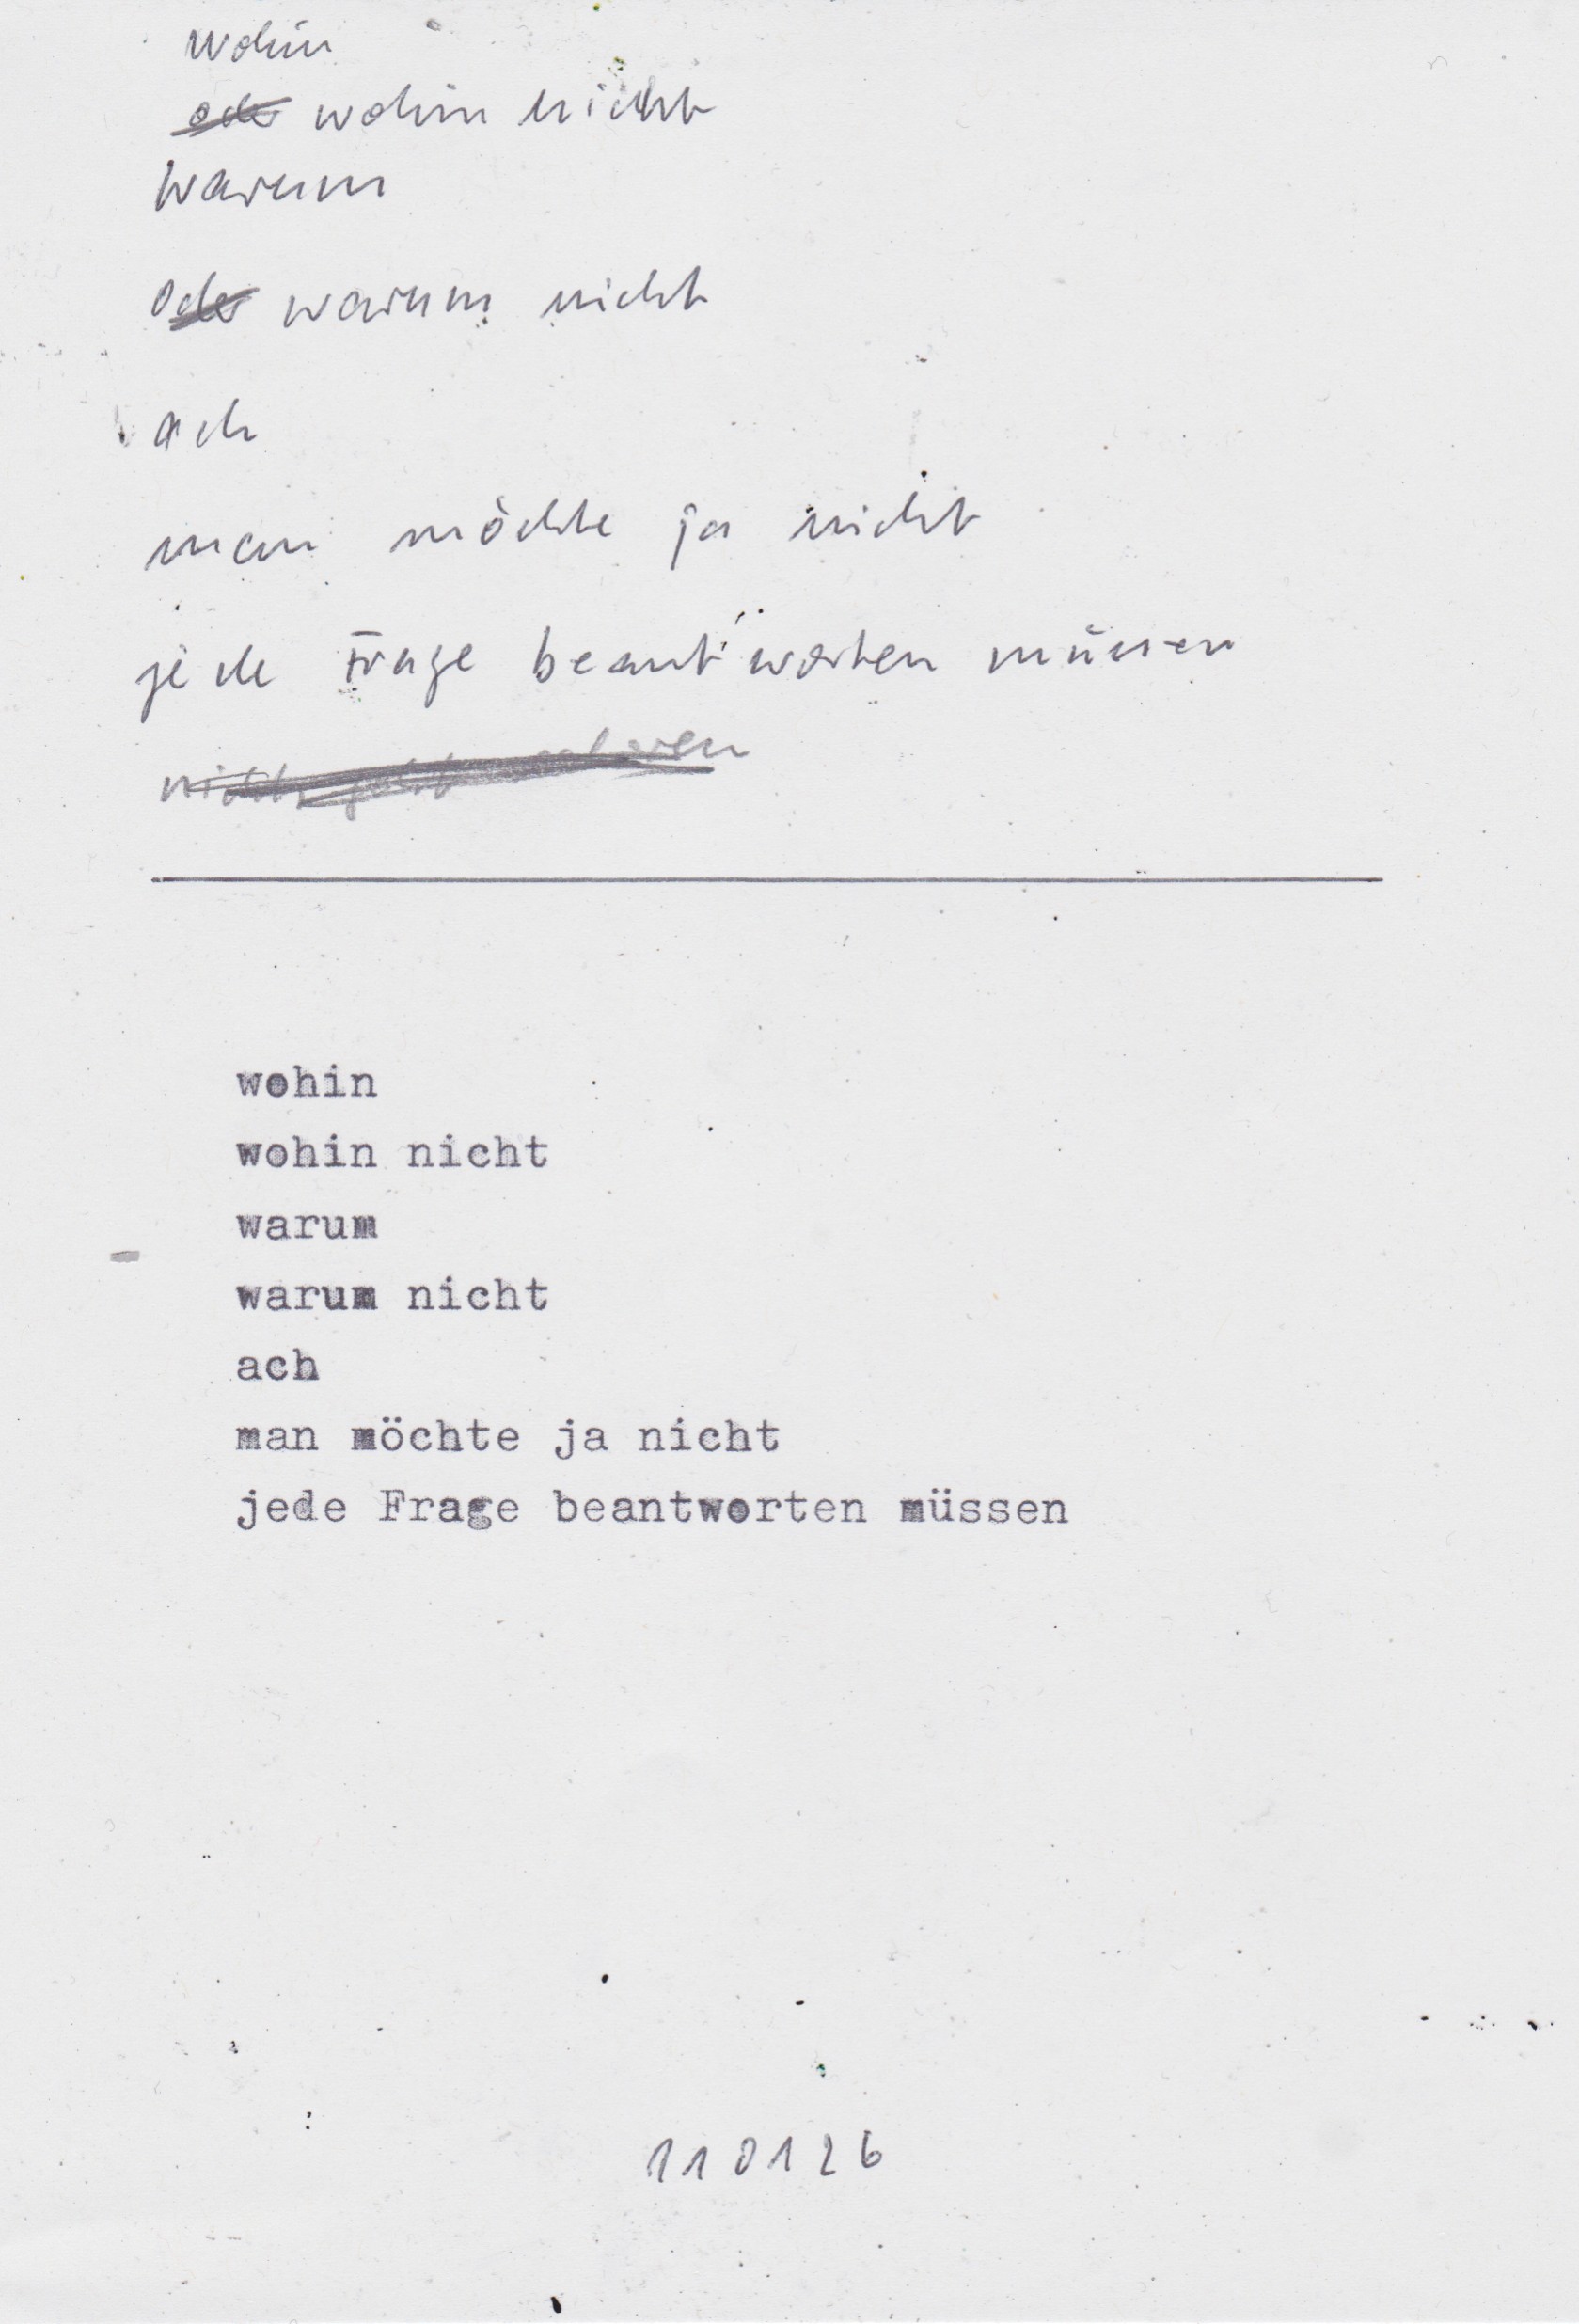 wohin
oder wohin nicht
warum
oder warum nicht
ach
man möchte ja nicht
jede Frage beantworten müssen
wohin
wohin nicht
warum
warum nicht
ach
man möchte ja nicht
jede Frage beantworten müssen
110126